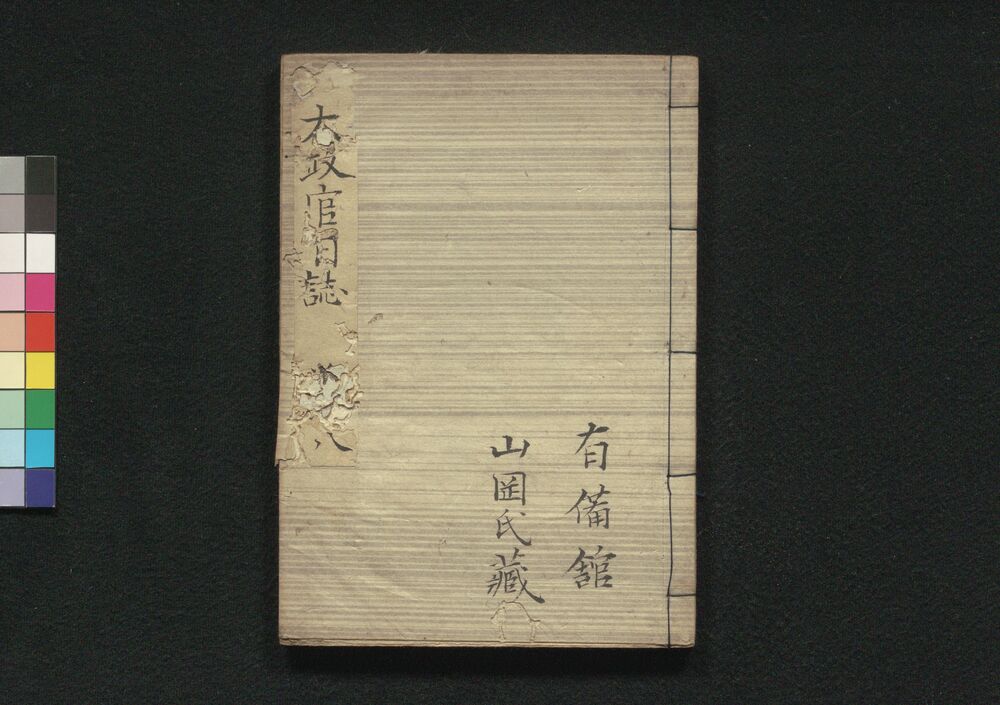 有備舘
山岡氏藏
太政官日誌
八